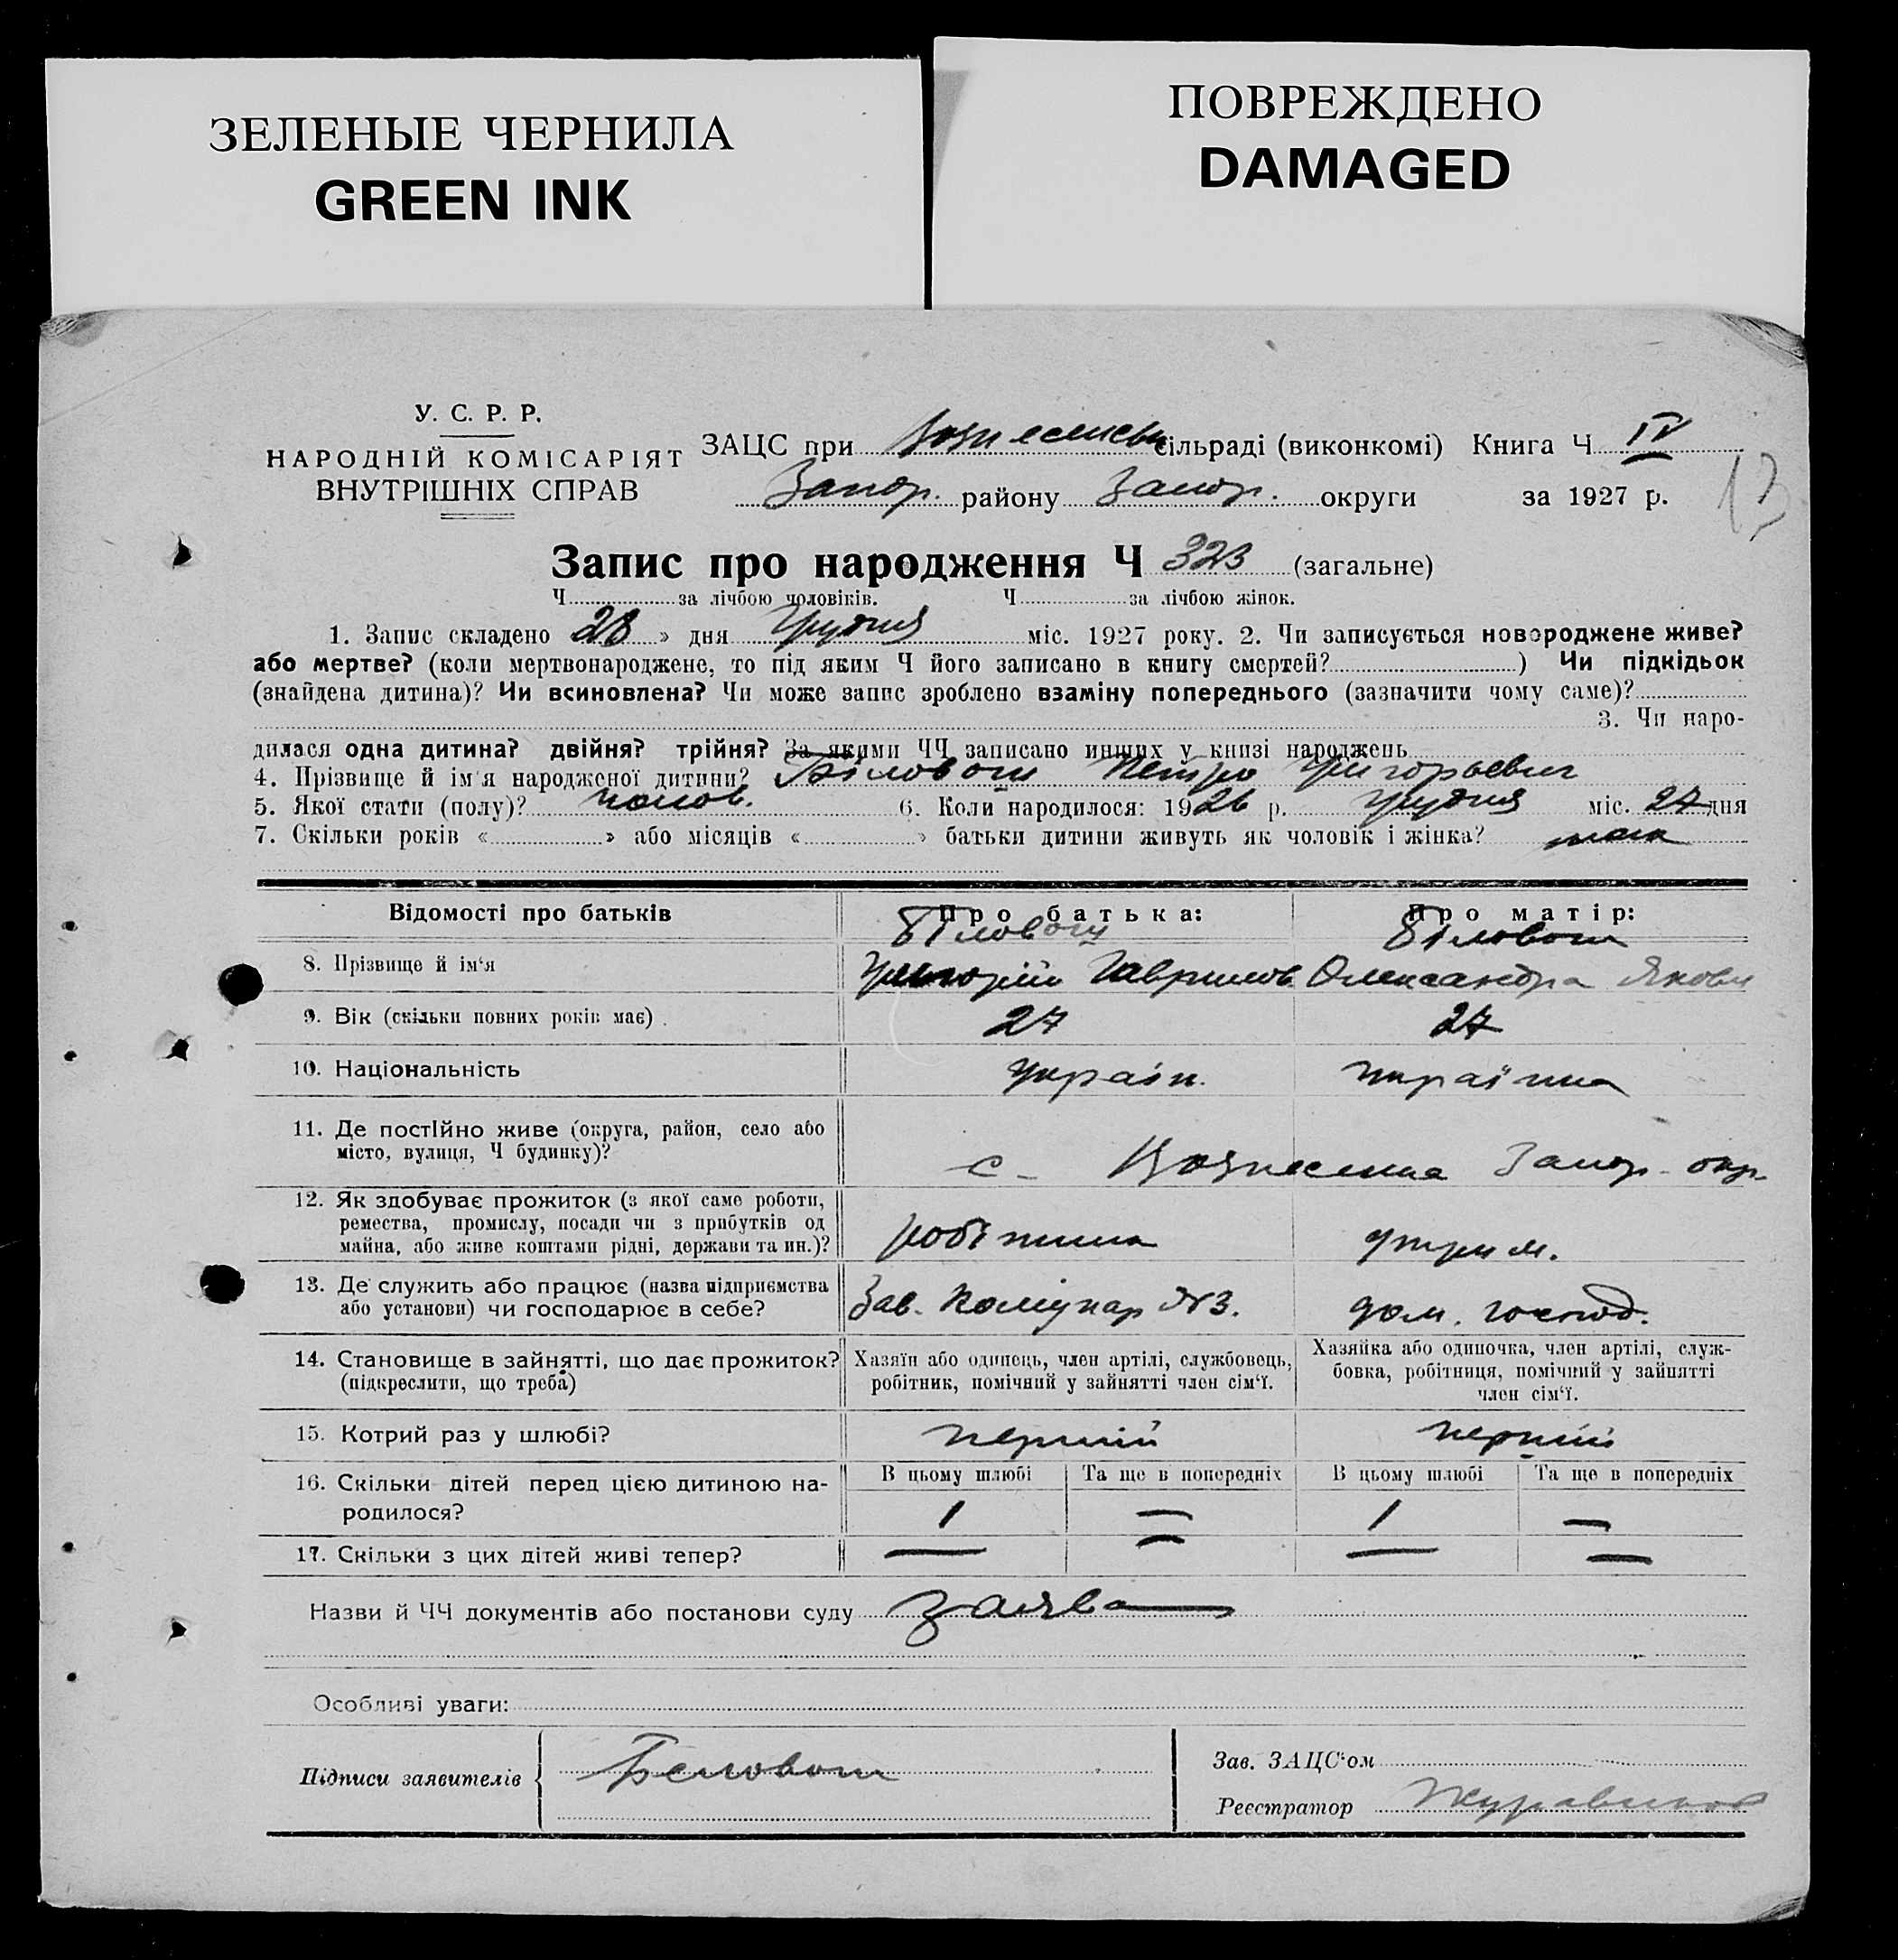 ЗЕЛЕНЫЕ ЧЕРНИЛА
GREEN INK
ПОВРЕЖДЕНО
DAMAGED
У. С. Р. Р.
НАРОДНІЙ КОМІСАРІЯТ
ВНУТРІШНІХ СПРАВ
ЗАЦС при Вознесенськ сільраді (виконкомі) Книга Ч IV
Запор. району Запор. округи за 1927 р.
13
Запис про народження Ч 323 (загальне)
Ч за лічбою чоловіків. Ч за лічбою жінок.
1. Запис складено 28 » дня Грудня міс. 1927 року. 2. Чи записується новороджене живе?
або мертве? (коли мертвонароджене, то під яким Ч його записано в книгу смертей? ) Чи підкідьок
(знайдена дитина)? Чи всиновлена? Чи може запис зроблено взаміну попереднього (зазначити чому саме)?
3. Чи наро-
дилася одна дитина? двійня? трійня? За якими ЧЧ записано инших у книзі народжень
4. Прізвище й ім'я народженої дитини? Біловол Петро Григорьевич
5. Якої стати (полу)? чолов. 6. Коли народилося: 1926 р. грудня міс. 27 дня
7. Скільки років « » або місяців « » батьки дитини живуть як чоловік і жінка?
Відомості про батьків Про батька: Про матір:
Біловол Біловол
8. Прізвище й ім'я Григорій Гаврилов. Олександра Яковл
9. Вік (скільки повних років має). 27 27
10. Національність україн. українка
11. Де постійно живе (округа, район, село або
місто, вулиця, Ч будинку)? с. Вознесенка Запор. окр.
12. Як здобуває прожиток (з якої саме роботи,
ремества, промислу, посади чи з прибутків од
майна, або живе коштами рідні, держави та ин.)? робітник утрим.
13. Де служить або працює (назва підприємства
або установи) чи господарює в себе? Зав. Комунар №3. дом. господ.
14. Становище в зайнятті, що дає прожиток?
(підкреслити, що треба)
Хазяїн або одинець, член артілі, службовець,
робітник, помічний у зайнятті член сім'ї.
Хазяйка або одиночка, член артілі, служ-
бовка, робітниця, помічний у зайнятті
член сім'ї.
15. Котрий раз у шлюбі? перший перший
16. Скільки дітей перед цією дитиною на-
родилося?
В цьому шлюбі Та ще в попередніх В цьому шлюбі Та ще в попередніх
1 — 1 —
17. Скільки з цих дітей живі тепер? — — — —
Назви й ЧЧ документів або постанови суду заява
Особливі уваги:
Підписи заявителів Беловол
Зав. ЗАЦС'ом
Реєстратор